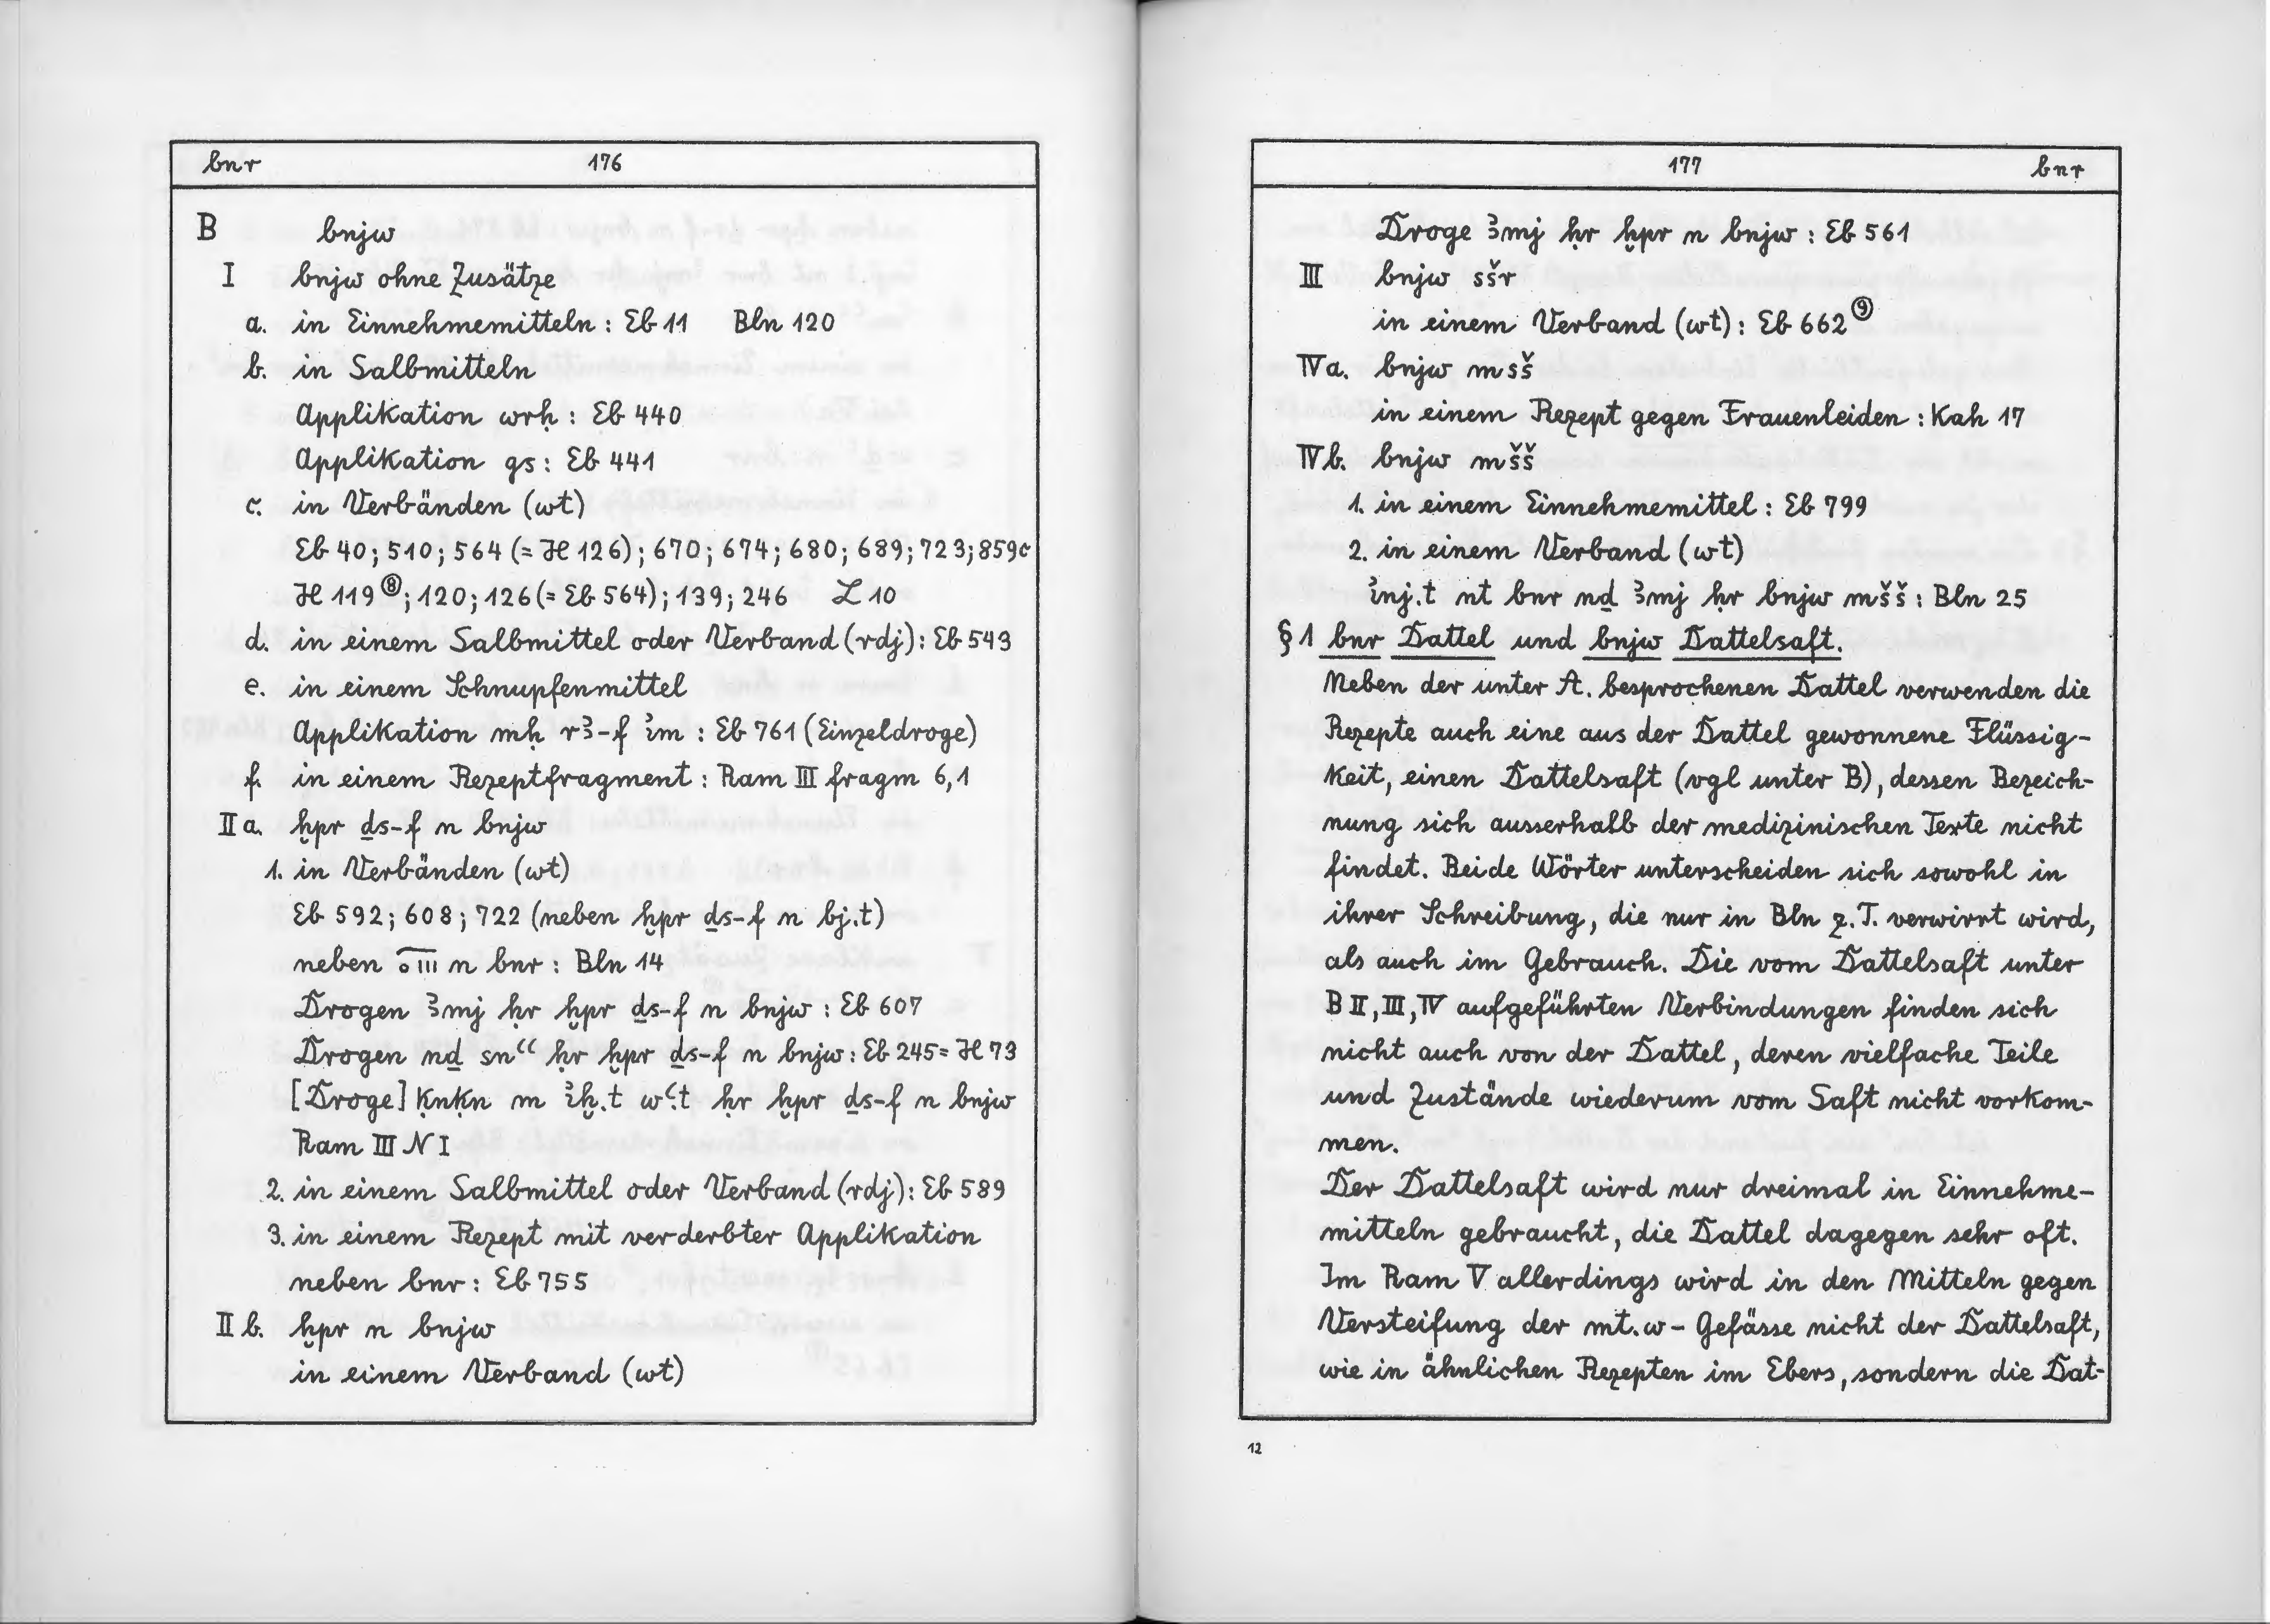 bnr 176
B bnjw
I bnjw ohne Zusätze
a. in Einnehmemitteln : Eb 11 Bln 120
b. in Salbmitteln
Applikation wrḥ : Eb 440
Applikation gs : Eb 441
c. in Verbänden (wt)
Eb 40; 510; 564 (= H 126); 670; 674; 680; 689; 723; 859c
H 119 ⑧; 120; 126 (= Eb 564); 139; 246 L 10
d. in einem Salbmittel oder Verband (rdj): Eb 543
e. in einem Schnupfenmittel
Applikation mḥ rꜣ-f ꞽm : Eb 761 (Einzeldroge)
f. in einem Rezeptfragment : Ram III fragm 6,1
II a. ḫpr ḏs-f n bnjw
1. in Verbänden (wt)
Eb 592; 608; 722 (neben ḫpr ḏs-f n bj.t)
neben n bnr : Bln 14
Drogen ꜣmj ḥr ḫpr ḏs-f n bnjw : Eb 607
Drogen nḏ snꜥꜥ ḥr ḫpr ḏs-f n bnjw : Eb 245 = H 73
[Droge] ḳnḳn m ꞽḫ.t wꜥ.t ḥr ḫpr ḏs-f n bnjw
Ram III N I
2. in einem Salbmittel oder Verband (rdj): Eb 589
3. in einem Rezept mit verderbter Applikation
neben bnr : Eb 755
II b. ḫpr n bnjw
in einem Verband (wt)
177 bnr
Droge ꜣmj ḥr ḫpr n bnjw : Eb 561
III bnjw sšr
in einem Verband (wt) : Eb 662 ⑨
IV a. bnjw msš
in einem Rezept gegen Frauenleiden : Kah 17
IV b. bnjw mšš
1. in einem Einnehmemittel : Eb 799
2. in einem Verband (wt)
ꞽnj.t nt bnr nḏ ꜣmj ḥr bnjw mšš : Bln 25
§ 1 bnr Dattel und bnjw Dattelsaft.
Neben der unter A. besprochenen Dattel verwenden die
Rezepte auch eine aus der Dattel gewonnene Flüssig-
keit, einen Dattelsaft (vgl unter B), dessen Bezeich-
nung sich ausserhalb der medizinischen Texte nicht
findet. Beide Wörter unterscheiden sich sowohl in
ihrer Schreibung, die nur in Bln z. T. verwirrt wird,
als auch im Gebrauch. Die vom Dattelsaft unter
B II, III, IV aufgeführten Verbindungen finden sich
nicht auch von der Dattel, deren vielfache Teile
und Zustände wiederum vom Saft nicht vorkom-
men.
Der Dattelsaft wird nur dreimal in Einnehme-
mitteln gebraucht, die Dattel dagegen sehr oft.
Im Ram V allerdings wird in den Mitteln gegen
Versteifung der mt.w - Gefässe nicht der Dattelsaft,
wie in ähnlichen Rezepten im Ebers, sondern die Dat-
12